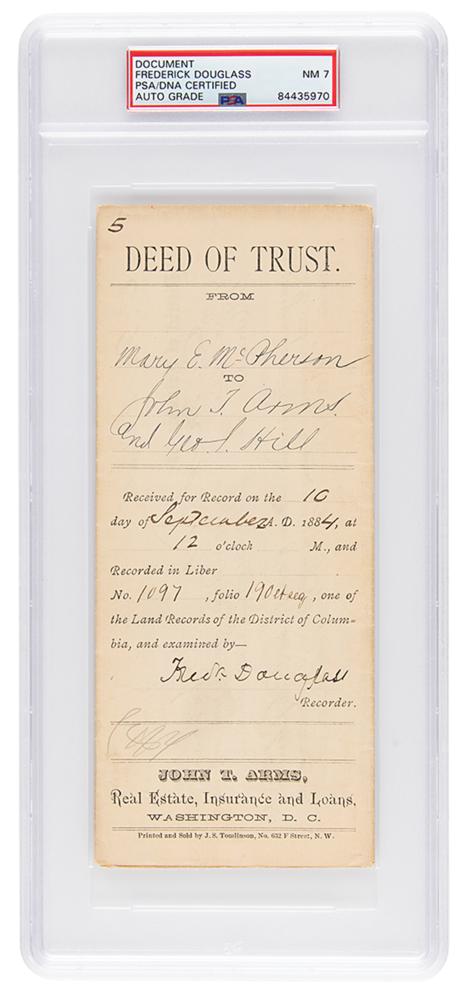 DOCUMENT
FREDERICK DOUGLASS NM 7
PSA/DNA CERTIFIED
AUTO GRADE PSA 84435970
5
DEED OF TRUST.
FROM
Mary E. McPherson
TO
John T. Arms.
and Geo. S. Hill
Received for Record on the 10
day of September A. D. 1884, at
12 o'clock M., and
Recorded in Liber
No. 1097, folio 190 et seq, one of
the Land Records of the District of Colum=
bia, and examined by—
Fredk. Douglass
Recorder.
JOHN T. ARMS,
Real Estate, Insurance and Loans,
WASHINGTON, D. C.
Printed and Sold by J. S. Tomlinson, No. 632 F Street, N. W.